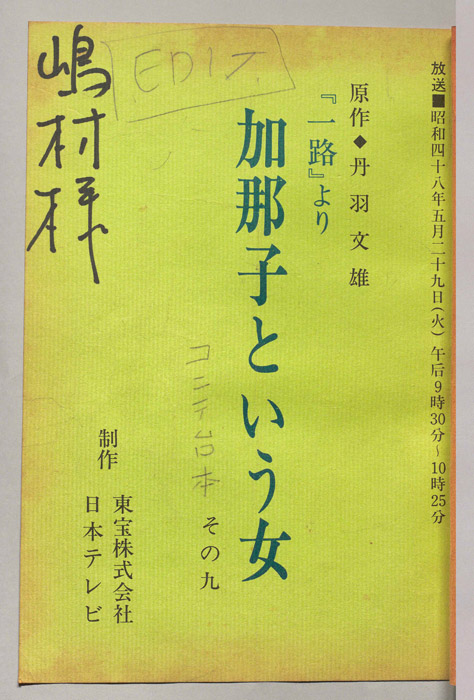 放送■昭和四十八年五月二十九日(火) 午后9時30分〜10時25分
原作◆丹羽文雄
『一路』より
加那子という女
その九
コンテ台本
制作
東宝株式会社
日本テレビ
EDIT.
嶋村様